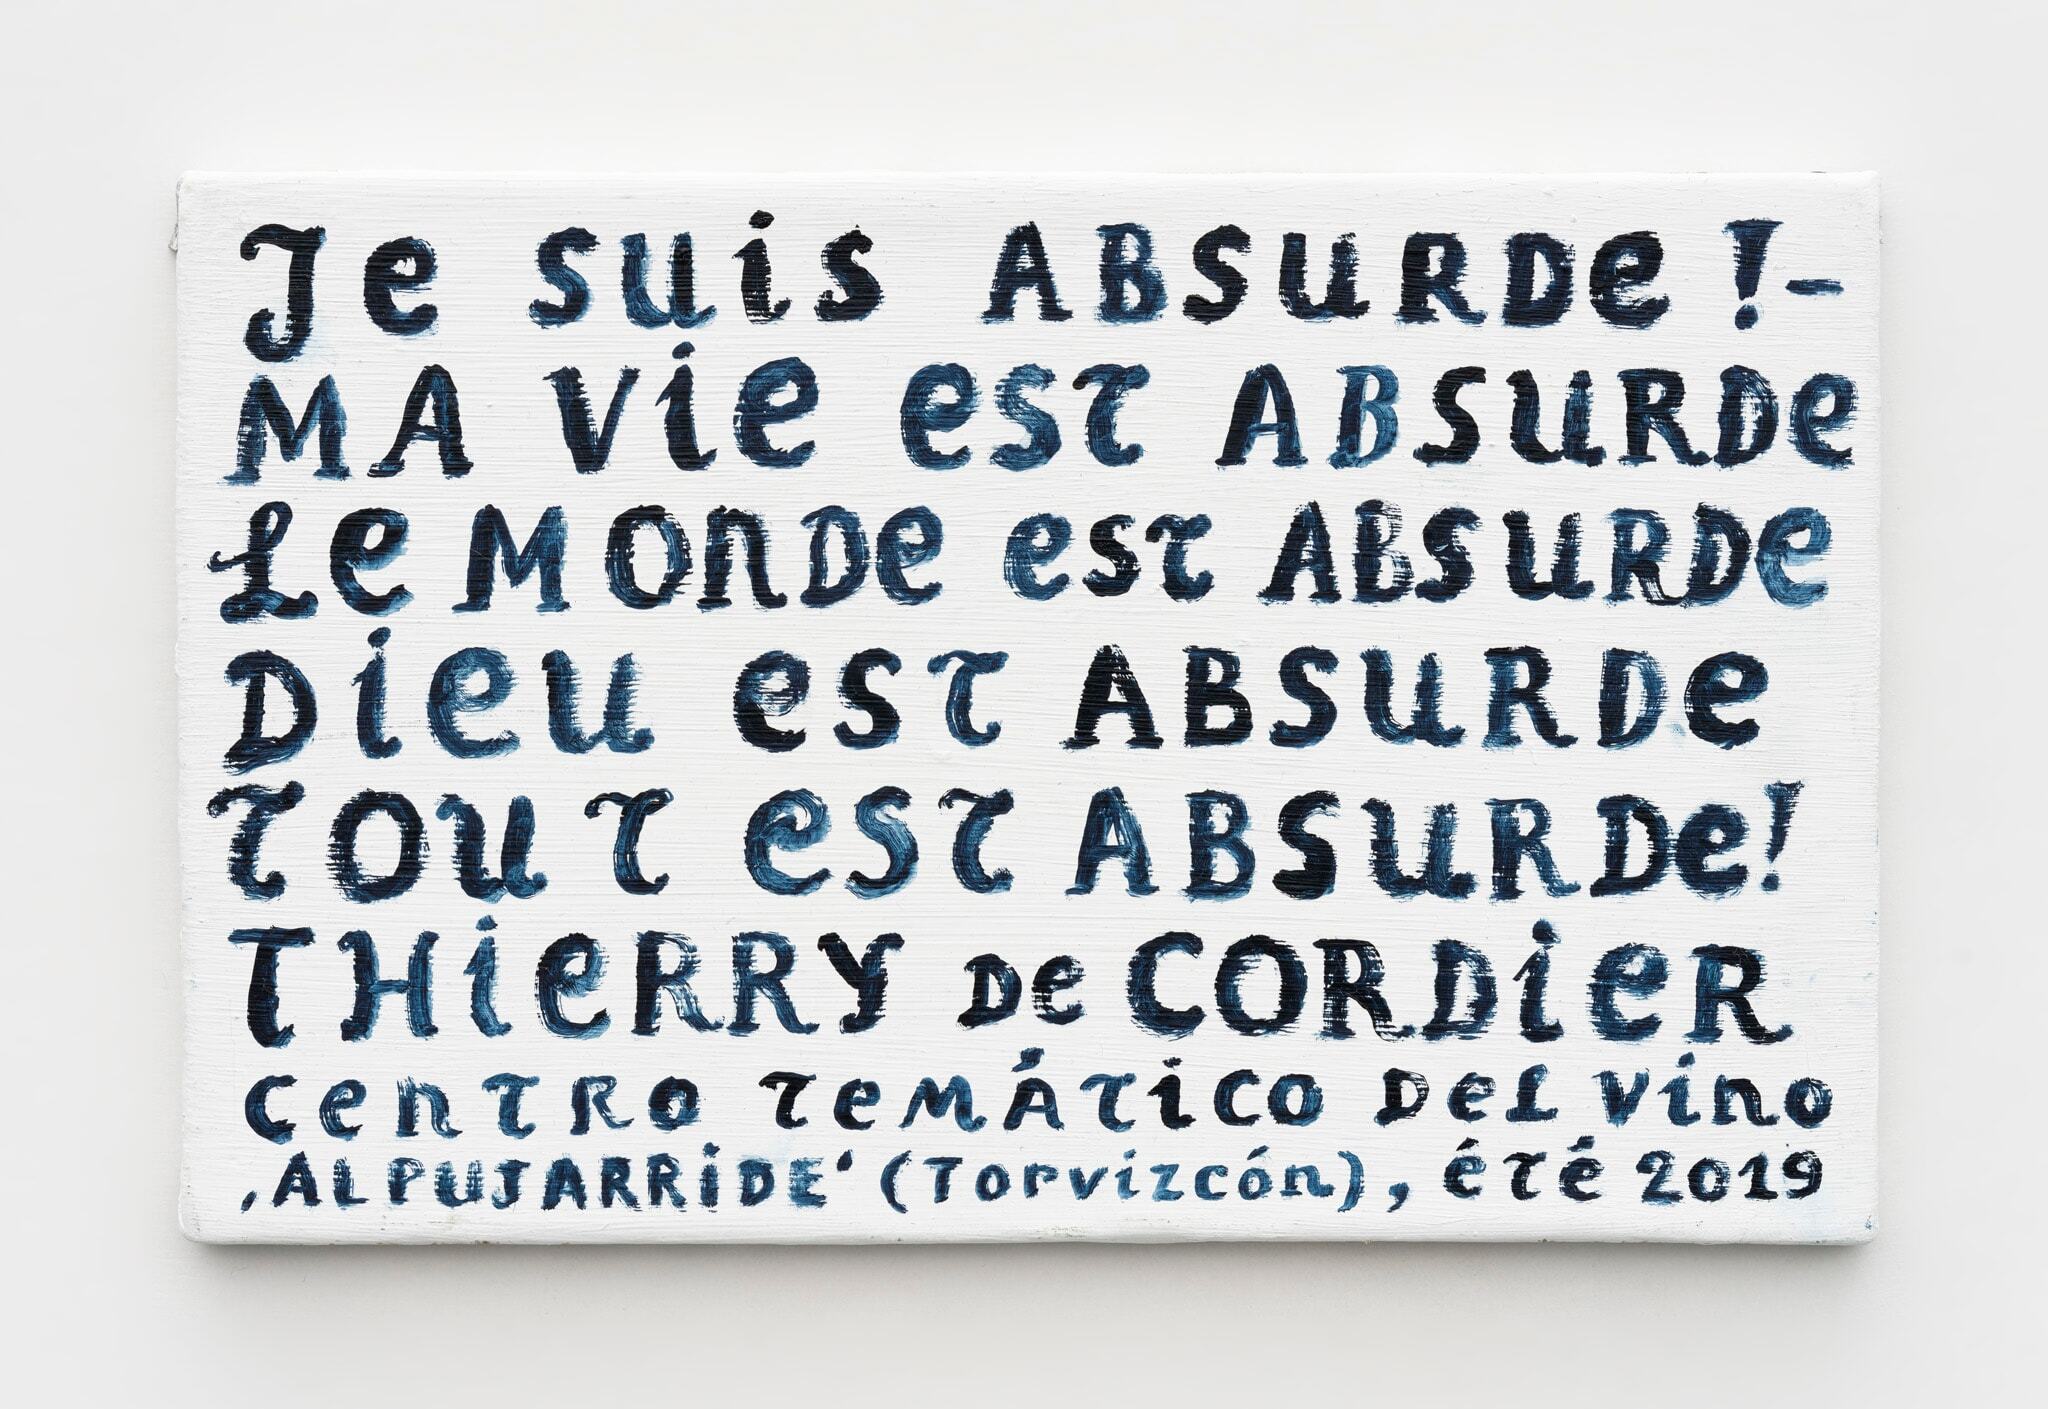 Je suis ABSURDE !-
MA vie est ABSURDE
Le MONDE est ABSURDE
Dieu est ABSURDE
TOUT est ABSURDE!
THIERRY De CORDIER
Centro Temático Del vino
,ALPUJARRIDE' (Torvizcón), été 2019